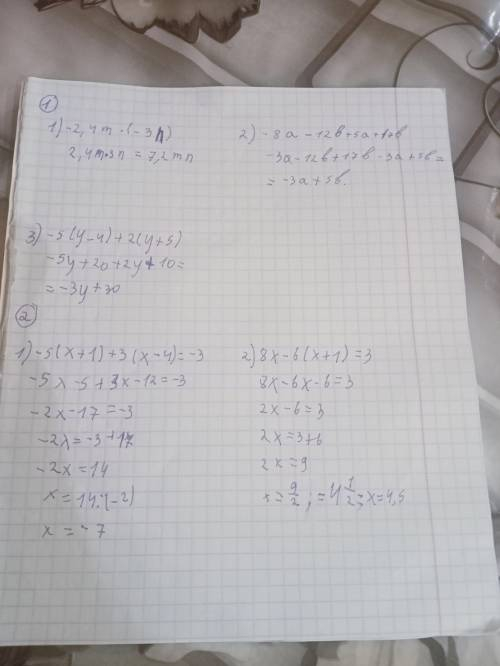 ①
1) -2,4m · (-3n)
2,4m·3n = 7,2mn
2) -8a - 12b + 5a + 17b
-3a - 12b + 17b - 3a + 5b =
= -3a + 5b.
3) -5(y-4) + 2(y+5)
-5y + 20 + 2y + 10 =
= -3y + 30
②
1) -5(x+1) + 3(x-4) = -3
-5x - 5 + 3x - 12 = -3
-2x - 17 = -3
-2x = -3 + 17
-2x = 14
x = 14:(-2)
x = -7
2) 8x - 6(x+1) = 3
8x - 6x - 6 = 3
2x - 6 = 3
2x = 3 + 6
2x = 9
x = 9/2 ; = 4 1/2 ; x = 4,5